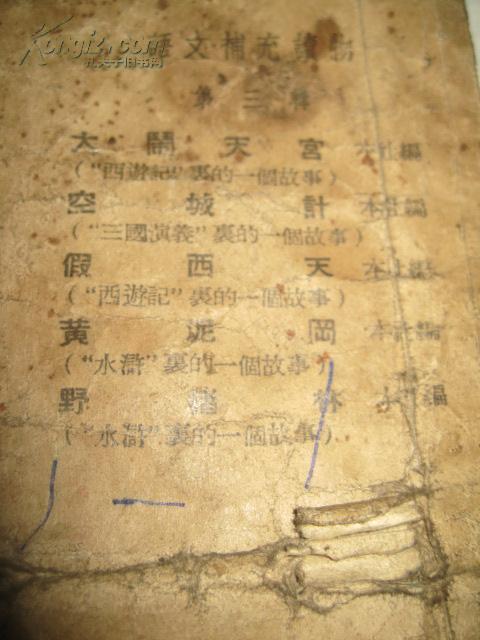 Kongfz.com
孔夫子旧书网
語文補充讀物
第三輯
大鬧天宮 本社編
(“西遊記”裏的一個故事)
空城計 本社編
(“三國演義”裏的一個故事)
假西天 本社編
(“西遊記”裏的一個故事)
黃泥岡 本社編
(“水滸”裏的一個故事)
野豬林 本社編
(“水滸”裏的一個故事)